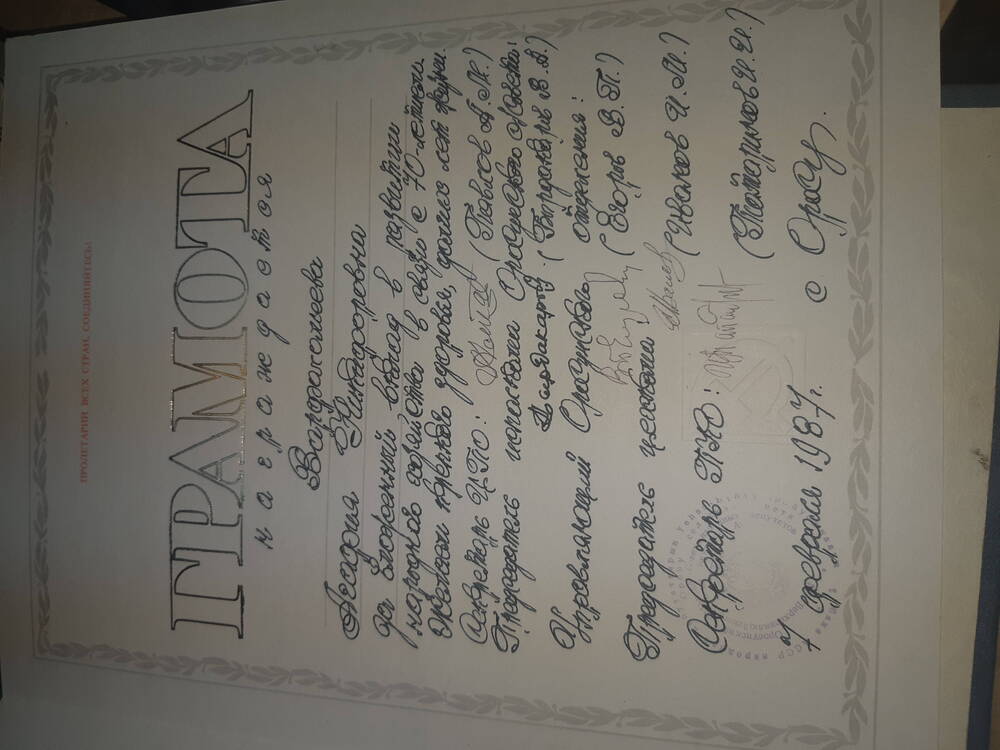 ПРОЛЕТАРИИ ВСЕХ СТРАН, СОЕДИНЯЙТЕСЬ!
ГРАМОТА
награждается
Варфоломеева
Агафия Никифоровна
за вклад в развитии
народного хозяйства в связи с 70-летием.
Желаем крепкого здоровья, долгих лет жизни.
Секретарь ЦПО: (Павлов А.М.)
Председатель исполкома Оросунского Совета:
(Бурдакаров В.А.)
Управляющий Оросунского отделения:
(Егоров В.П.)
Председатель цехкома:
(Иванов И.М.)
Секретарь ППО:
(Татаринов И.И.)
7 февраля 1987г. с Оросу.